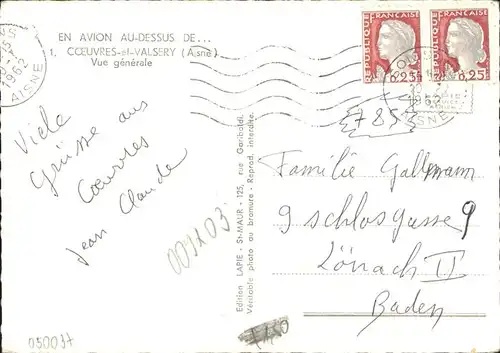 EN AVION AU-DESSUS DE...
1. CŒUVRES-et-VALSERY (Aisne)
Vue générale
1962
AISNE
REPUBLIQUE FRANÇAISE
0,25
REPUBLIQUE FRANÇAISE
0,25
AISNE
785
Viele
Grüsse aus
Cœuvres
Jean Claude
001203
050037
Edition LAPIE - St-MAUR - 125, rue Garibaldi.
Véritable photo au bromure - Reprod. interdite.
Familie Gallmann
9 schlosgasse 9
Lönach II
Baden